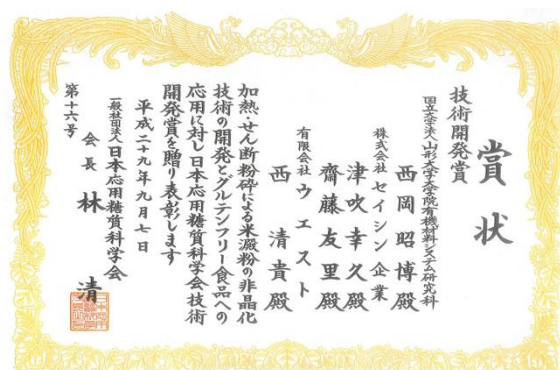 賞状
技術開発賞
国立大学法人山形大学大学院有機材料システム研究科
西岡昭博殿
株式会社セイシン企業
津吹幸久殿
齋藤友里殿
有限会社ウエスト
西清貴殿
加熱・せん断粉砕による米澱粉の非晶化
技術の開発とグルテンフリー食品への
応用に対し日本応用糖質科学会技術
開発賞を贈り表彰します
平成二十九年九月七日
一般社団法人日本応用糖質科学会
会長 林 清
第十六号